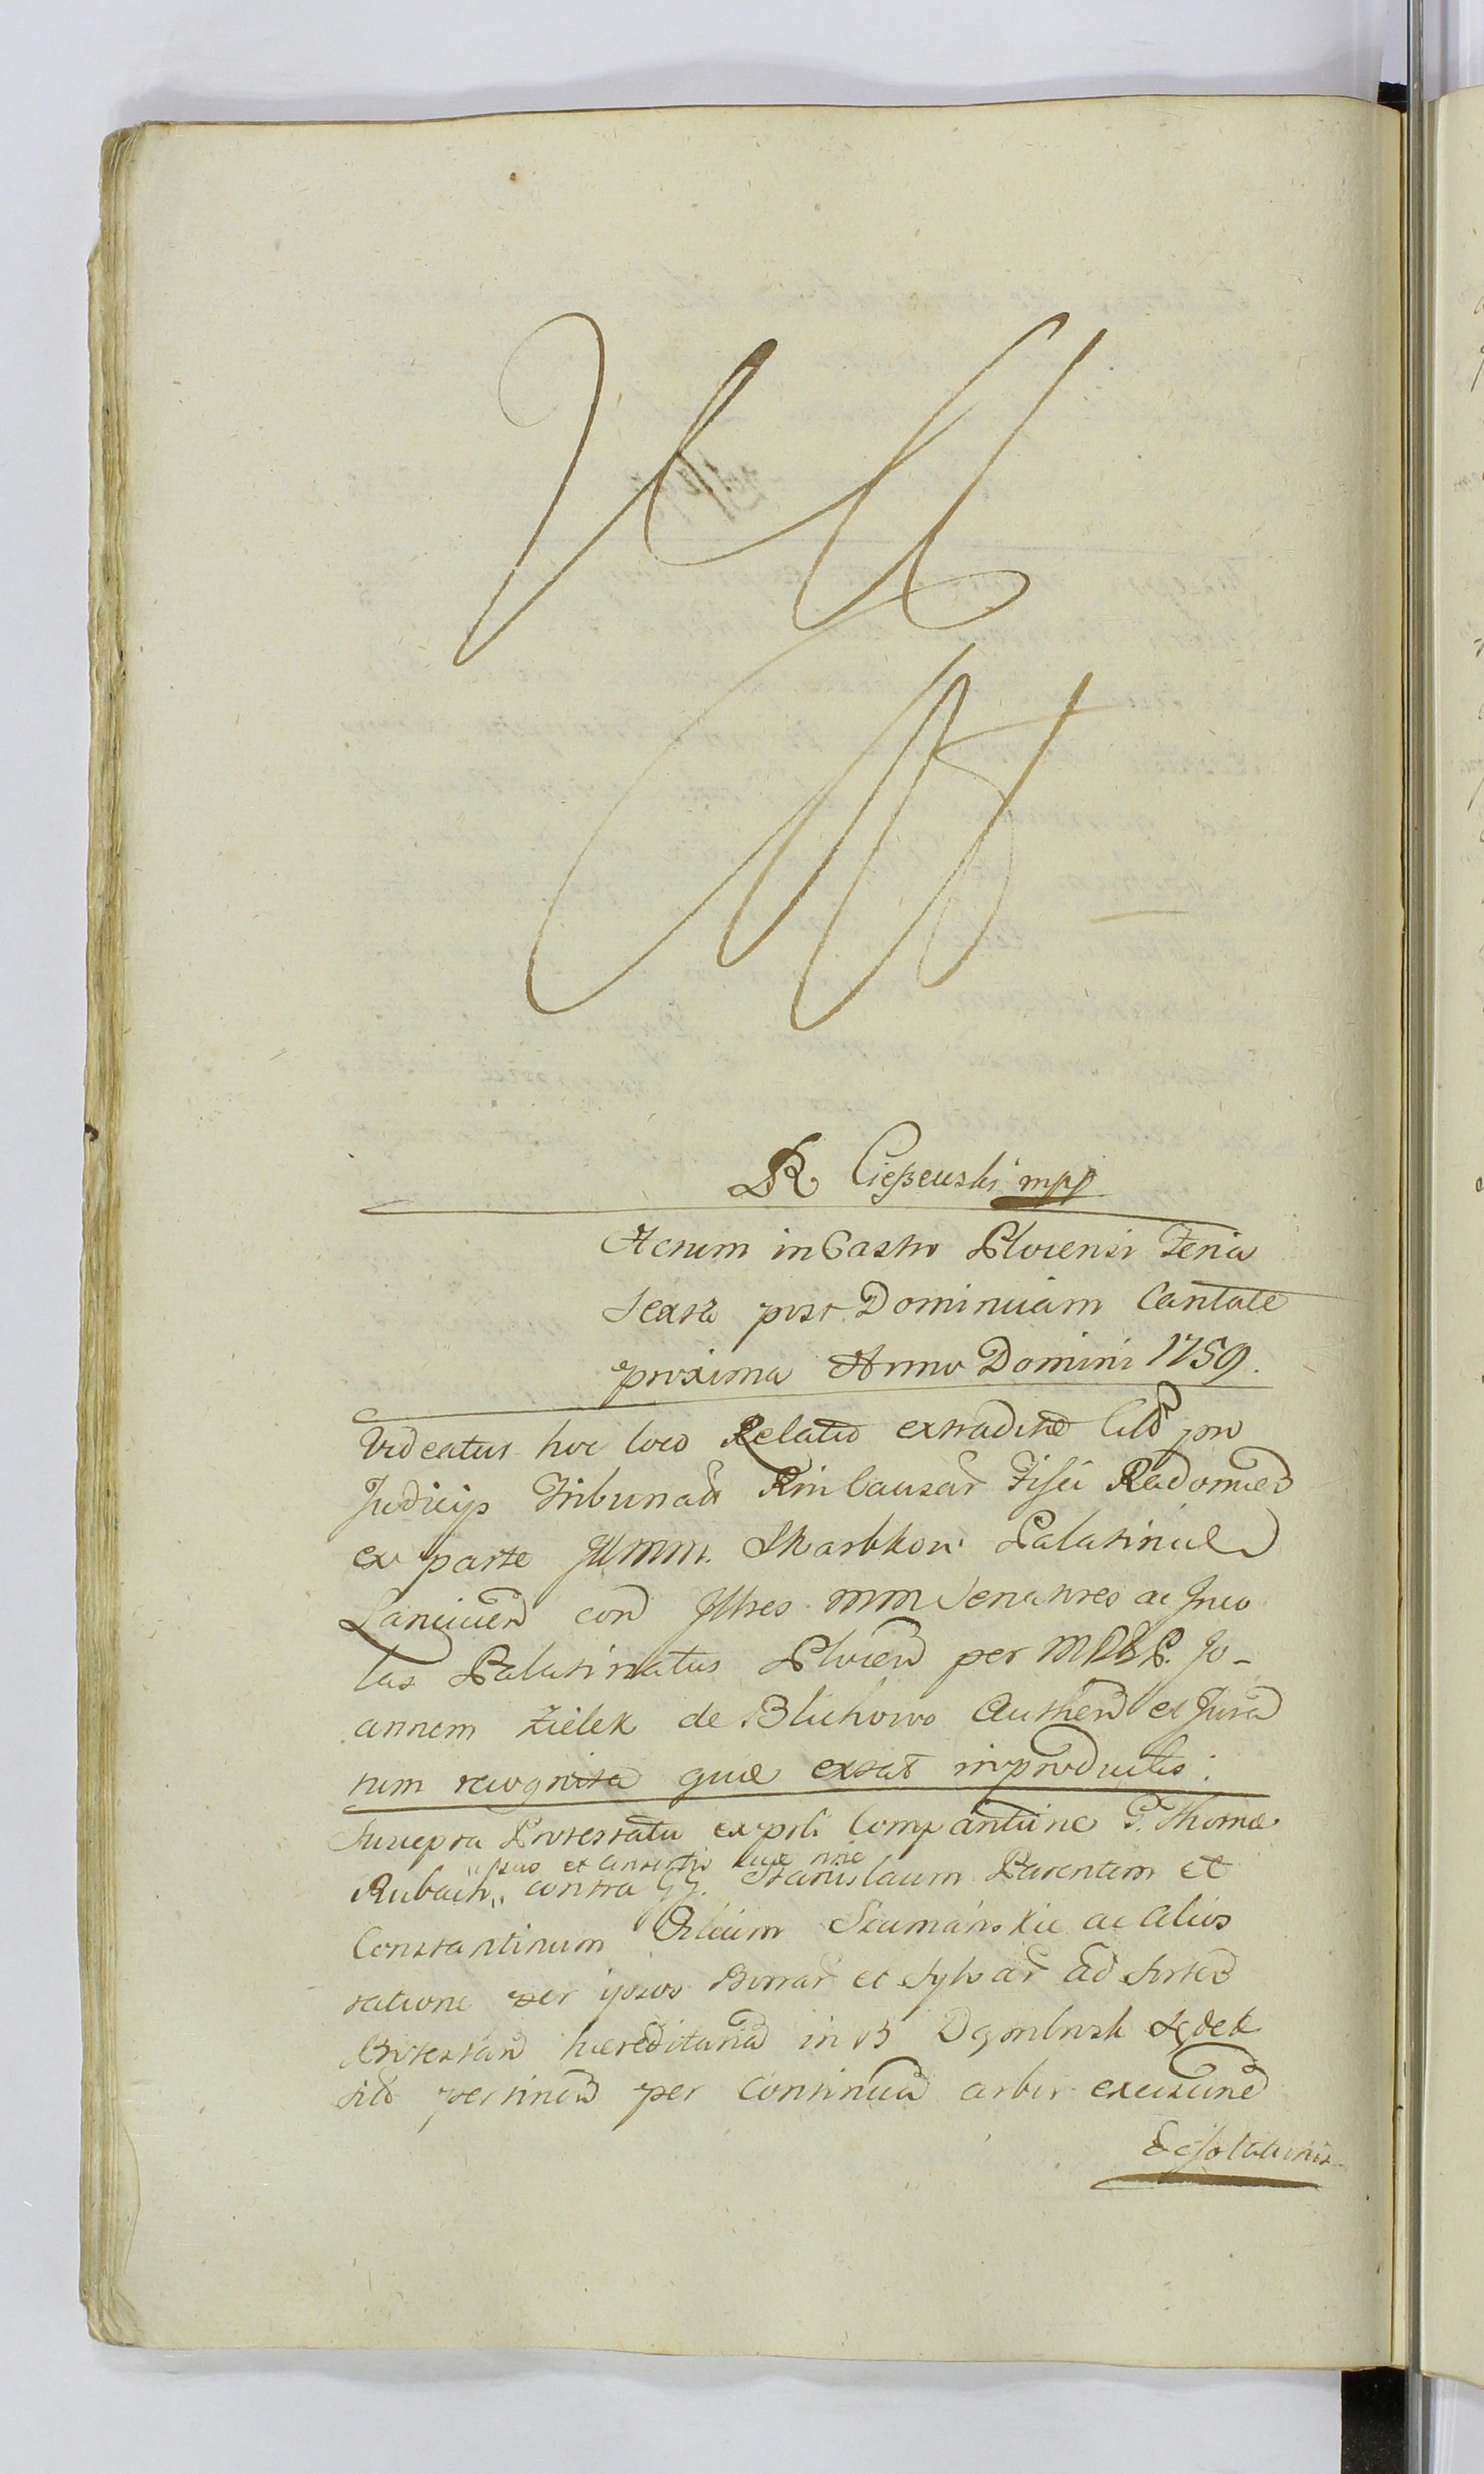 R Cieszewski mpp
Actum in Castro Plocensi Feria
sexta post Dominicam Cantate
proxima Anno Domini 1759.
Videatur hoc loco Relatio extraditae pro
Judicijs Tribunal Rni Causar Fisci Radomien
ex parte JllMM. Skarbkow Palatinid
Lancicien con Jllres MM Senatores ac Inco
las Palatinatus Plocen per Jo-
annem Zielek de Blichowo Authen et Jura
tum recognita quae extat in productis.
Suscepta Protestatio Comparitione G. Thomae
Rubach " contra GG. Stanislaum Parentem et
Constantinum Filium Szumanskie ac alios
ratione per ipsos Borrar et Sylvar ad sortes
Protestan haereditaria in B
sitt pertinen per continua arbor excisione